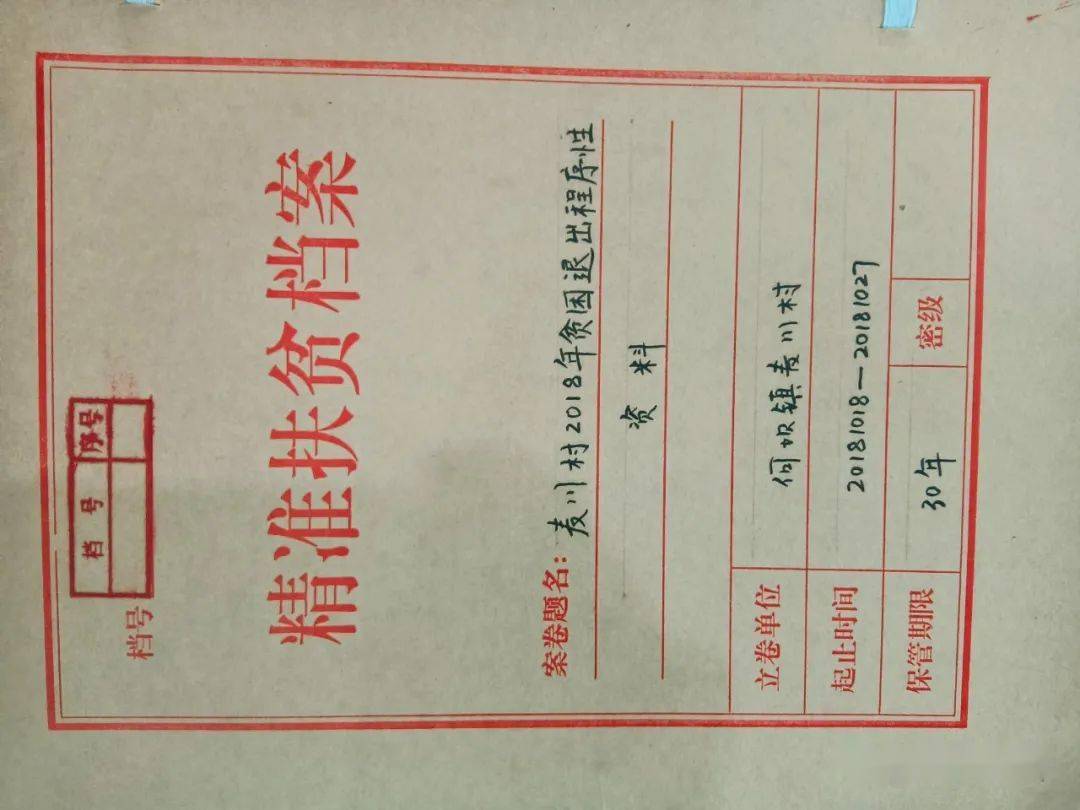 档号
档 号 序号
精准扶贫档案
案卷题名：麦川村2018年贫困退出程序性
资料
立卷单位 何坝镇麦川村
起止时间 20181018—20181027
保管期限 30年 密级